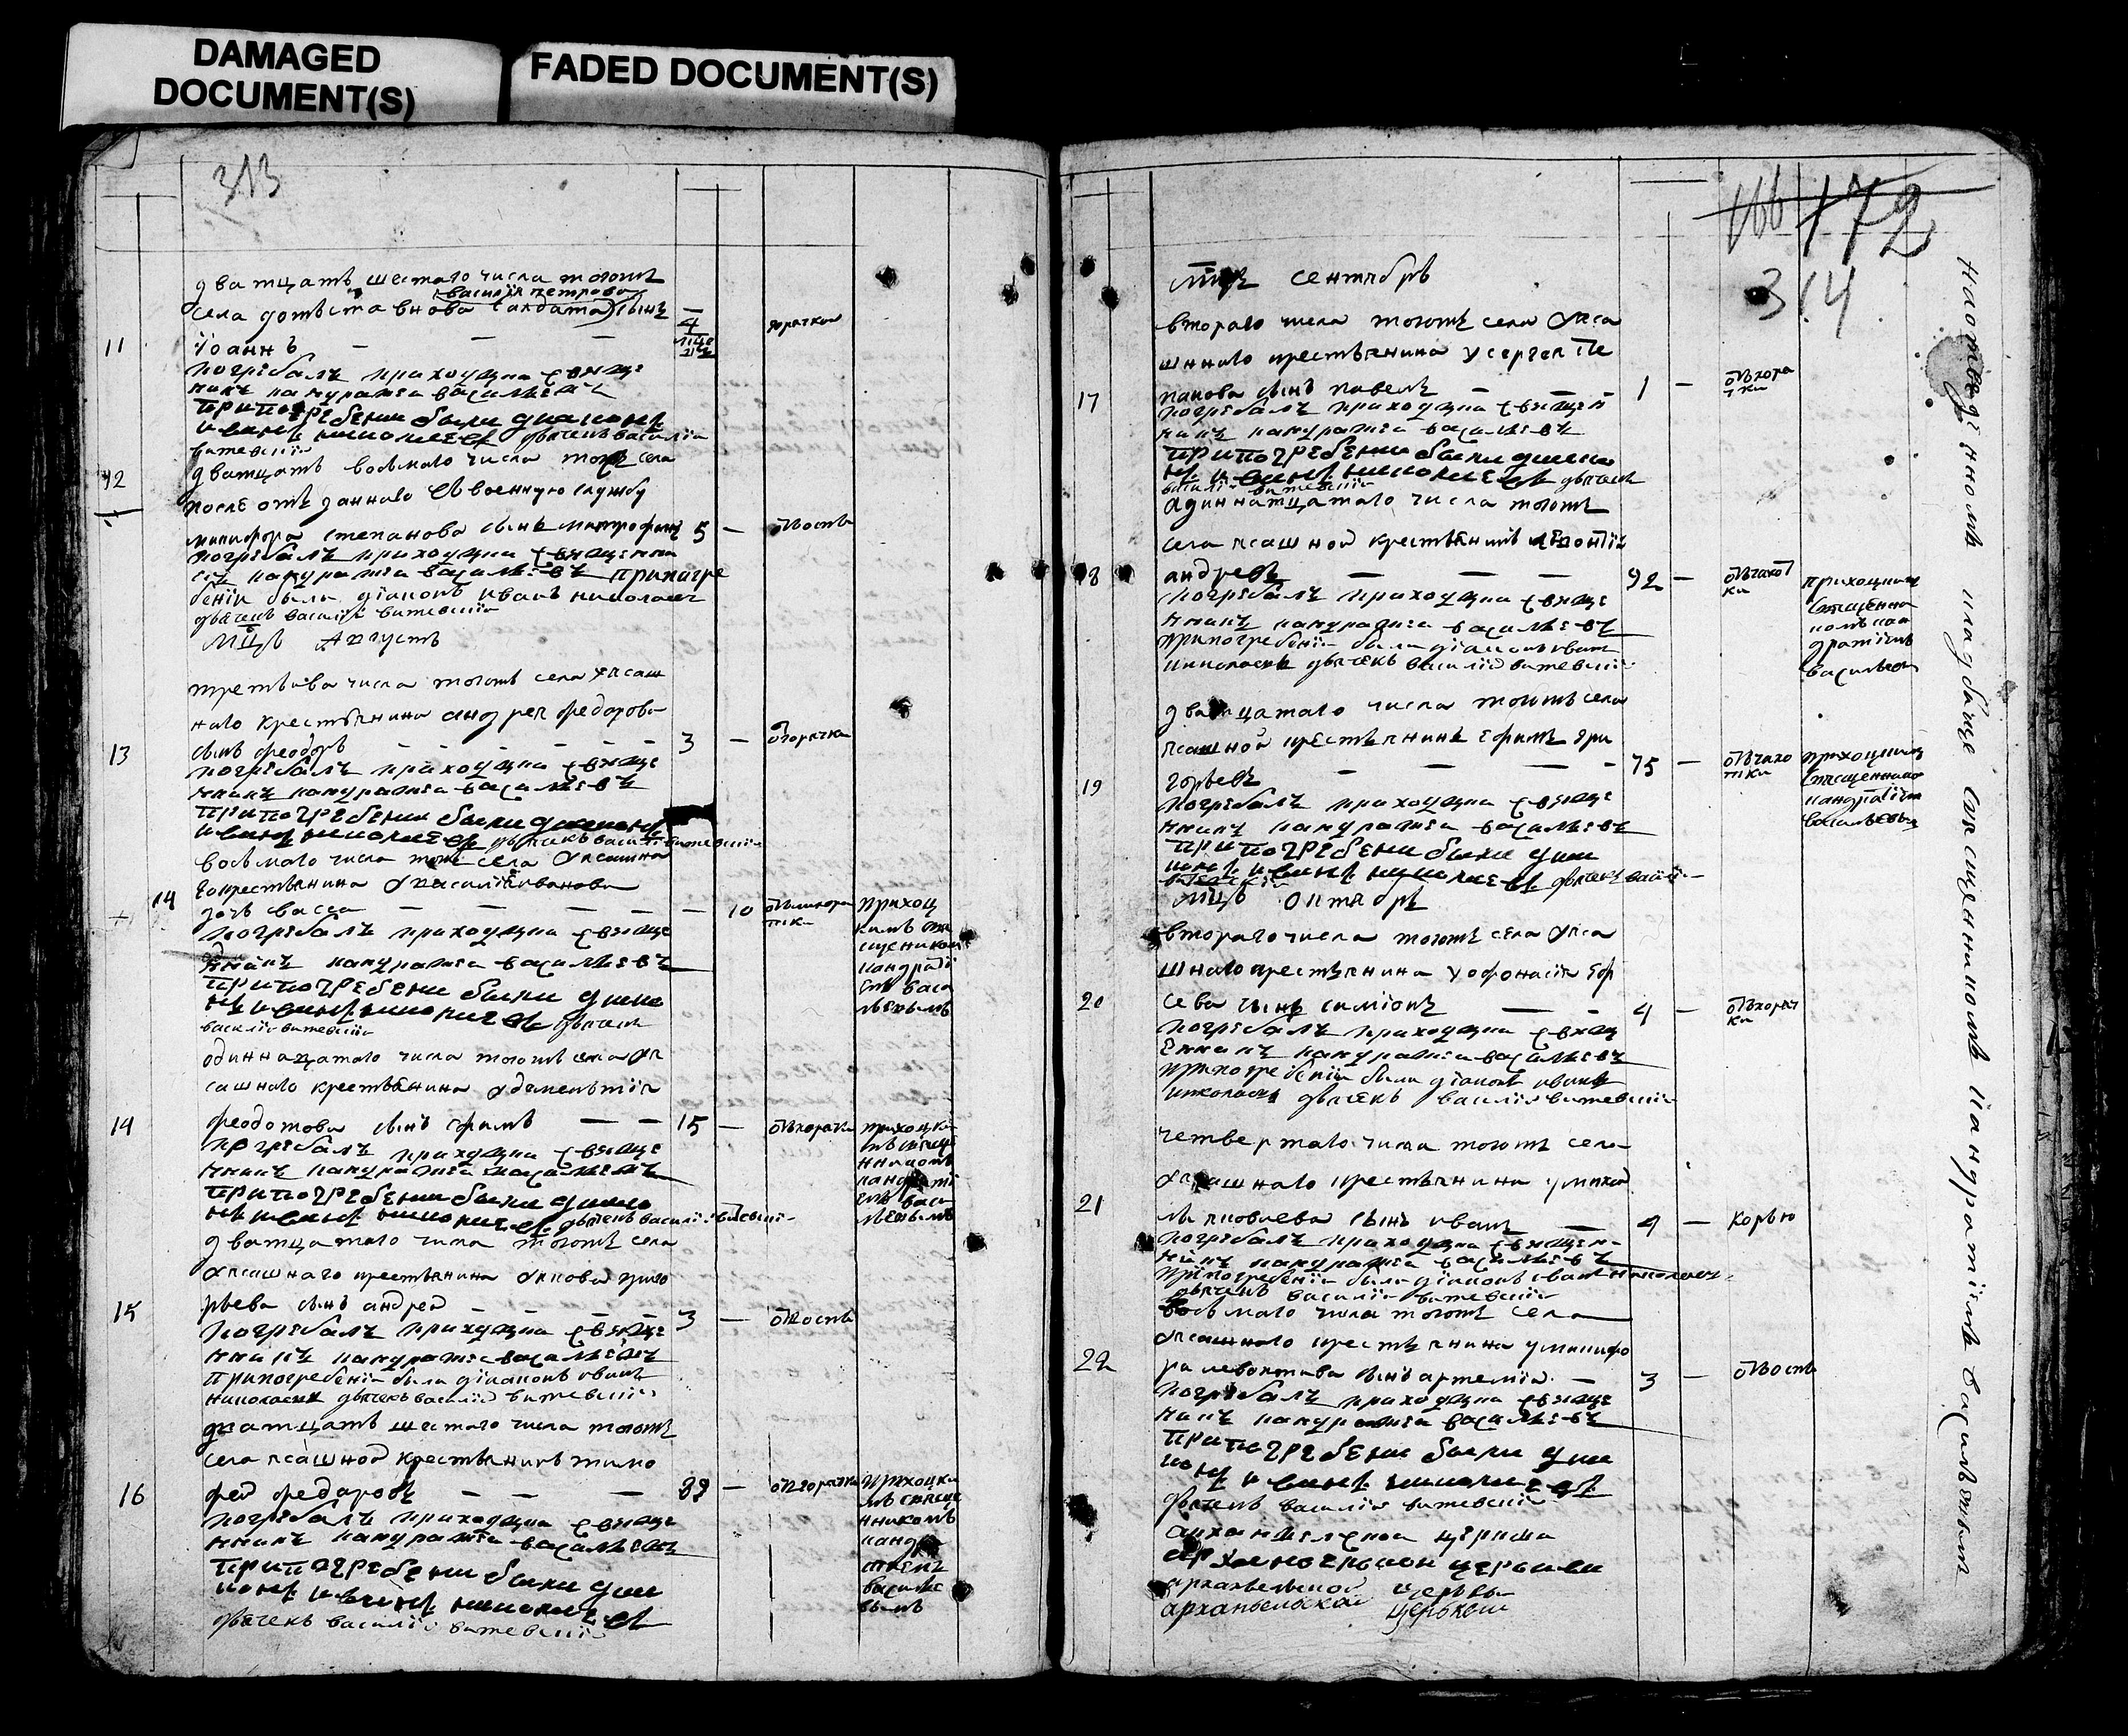 DAMAGED
DOCUMENT(S)
FADED DOCUMENT(S)
313
дватцать шестаго числа тогожъ
василiя петрова
села
11
Iоаннъ — — —
4
горячкои
погребалъ приходцки свяще
никъ кандратеи василъевъ
при погребени были диаконъ
иванъ николаевъ дьячекъ василiи
витевскiи
12
дватцать восьмаго числа тогожъ села
после отъ даннаво въ военную службу
никифора степанова сынъ митрофанъ 5 — отъ оспы
погребалъ приходцки священни
къ кандратеи василъевъ при погре
бенiи были дiаконъ иванъ николаевъ
дьячекъ василiи витевскiи
Мцъ Августъ
третьява числа тогожъ села ясаш
наго крестьянина андрея федорова
13
сынъ феодоръ — — — — — 3 — отъ горячки
погребалъ приходцки свяще
нникъ кандратеи василъевъ
при погребени были диаконъ
иванъ николаевъ дьячекъ василiи витевскiи
восьмаго числа тогожъ села ясашна
го крестьянина василiя иванова
14
дочь васса — — — — — 10
приход
кимъ свя
щеникомъ
кандратi
емъ васи
льевымъ
погребалъ приходцки свяще
нникъ кандратеи василъевъ
при погребени были диако
нъ иванъ николаевъ дьячекъ
василiи витевскiи
одиннацатаго числа тогожъ села я
сашнаго крестьянина
14
феодотова сынъ ефимъ — — 15 —
приходцки
мъ свяще
нникомъ
кандратi
емъ васи
льевымъ
погребалъ приходцки свяще
нникъ кандратеи василъевъ
при погребени были диако
нъ иванъ николаевъ дьячекъ василiи витевскiи
дватцатаго числа тогожъ села
ясашнаго крестьянина якова григо
15
рьева сынъ андреи — — — — 3 — отъ оспы
погребалъ приходцки свяще
нникъ кандратеи василъевъ
при погребенiи были дiаконъ иванъ
николаевъ дьячекъ василiи витевскiи
дватцать шестаго числа тогожъ
села ясашнои крестьянинъ тимо
16
феи федоровъ — — —
— отъ горячки
приходцки
мъ свяще
нникомъ
кандра
тiемъ
василье
вымъ
погребалъ приходцки свяще
нникъ кандратеи василъевъ
при погребени были диа
конъ иванъ николаевъ
дьячекъ василiи витевскiи
166 172
314
Мцъ сентябрь
втораго числа тогожъ села ясa
шннаго крестьянина у сергея сте
17
панова сынъ павелъ — — — 1 —
погребалъ приходцки священ
никъ кандратеи василъевъ
при погребени были диако
нъ иванъ николаевъ дьячекъ
василiи витевскiи
адиннатцатаго числа тогожъ
села ясашнои крестьянинъ леонтiи
18
андреевъ — — — 92 —
приходцкимъ
священни
комъ кан
дратiемъ
васильевы
погребалъ приходцки свяще
нникъ кандратеи василъевъ
при погребенiи были дiаконъ иванъ
николаевъ дьячекъ василiи витевскiи
дватцатаго числа тогожъ села
ясашнои крестьянинъ ефимъ гри
19
горьевъ — — — — 75 —
приходцкимъ
священнико
кандратiем
васильевы
погребалъ приходцки свяще
нникъ кандратеи василъевъ
при погребени были диа
конъ иванъ николаевъ дьячекъ василiи
витевскiи
Мцъ октябрь
втораго числа тогожъ села яса
шнаго крестьянина у офонасiя еф
20
сева сынъ симiонъ — — 4 —
погребалъ приходцки свящ
енникъ кандратеи василъевъ
при погребенiи были дiаконъ иванъ
николаевъ дьячекъ василiи витевскiи
четвертаго числа тогожъ села
ясашнаго крестьянина у михаи
21
лы яковлева сынъ иванъ — 4 — корью
погребалъ приходцки священ
никъ кандратеи василъевъ
при погребенiи были дiаконъ иванъ николаевъ
дьячекъ василiи витевскiи
восьмаго числа тогожъ села
ясашнаго крестьянина у никифо
22
ра левонтьева сынъ артемiи — 3 — отъ оспы
погребалъ приходцки свяще
никъ кандратеи василъевъ
при погребени были диа
конъ иванъ николаевъ
дьячекъ василiи витевскiи
архангелскои церкви
архангелскои церкви
архангельскои церкви
архангельскои церькви
на отведiнномъ кладбище священникомъ кандратiемъ васильевымъ